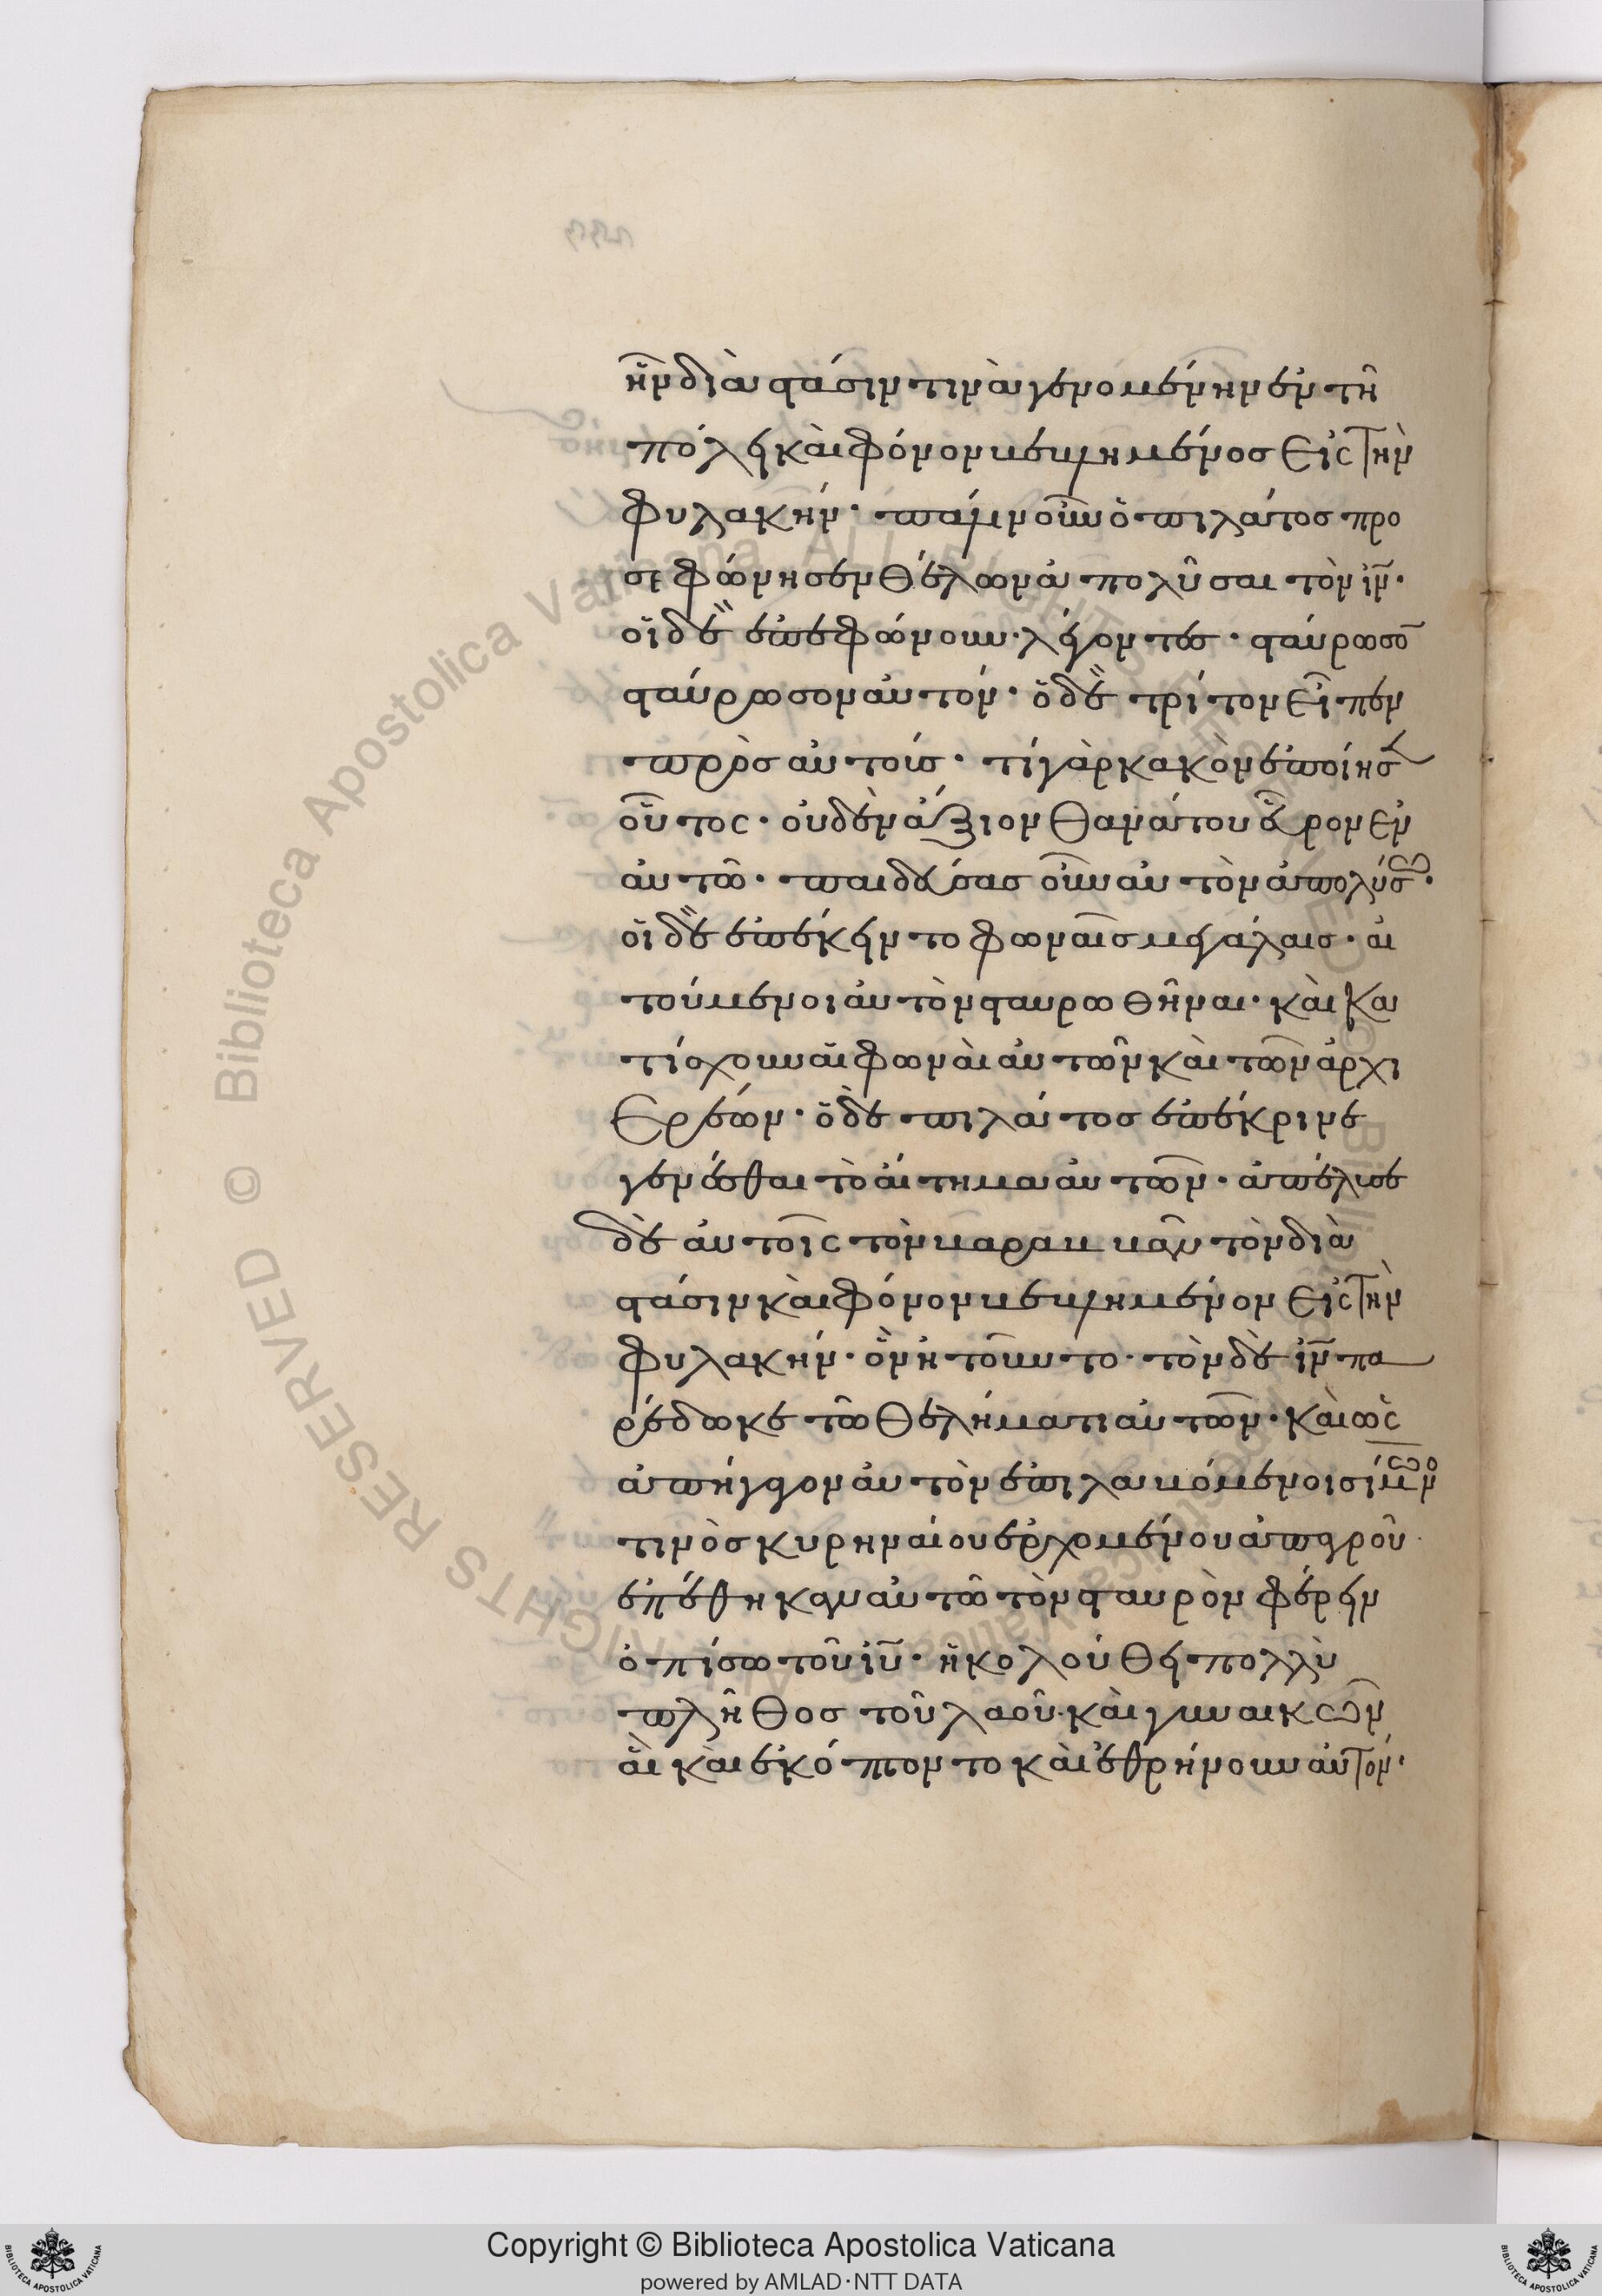 ἦν διὰ στάσιν τινὰ γενομένην ἐν τῆ
πόλει καὶ φόνον βεβλημένος εἰς τὴν
φυλακήν· πάλιν οὖν ὁ πιλάτος προ
σεφώνησεν θέλων ἀπολῦσαι τὸν ιν·
οἱ δὲ ἐπεφώνουν· λέγοντες· σταύρωσο̄
σταύρωσον αὐτόν· ὁ δὲ τρίτον εἶπεν
πρὸς αὐτούς· τί γὰρ κακὸν ἐποίησε
οὗτος· οὐδὲν ἄξιον θανάτου εὗρον ἐν
αὐτῶ· παιδεύσας οὖν αὐτὸν ἀπολύσω·
οἱ δὲ ἐπέκειντο φωναῖς μεγάλαις· αἰ
τούμενοι αὐτὸν σταυρωθῆναι· καὶ κα
τίσχυον αἱ φωναὶ αὐτῶν καὶ τῶν ἀρχι
ερέων· ὁ δὲ πιλάτος ἐπέκρινε
γενέσθαι τὸ αἴτημα αὐτῶν· ἀπέλυσε
δὲ αὐτοῖς τὸν βαραββᾶν τὸν διὰ
στάσιν καὶ φόνον βεβλημένον εἰς τὴν
φυλακήν· ὃν ἠτοῦντο· τὸν δὲ ιν πα
ρέδωκε τῶ θελήματι αὐτῶν· καὶ ὡς
ἀπήγαγον αὐτὸν ἐπιλαβόμενοι σίμωνο
τινὸς κυρηναίου ἐρχομένου ἀπ ἀγροῦ
ἐπέθηκαν αὐτῶ τὸν σταυρὸν φέρειν
ὀπίσω τοῦ ιυ· ἠκολούθει πολλὺ
πλῆθος τοῦ λαοῦ· καὶ γυναικῶν
αἳ καὶ ἐκόπτοντο καὶ ἐθρήνουν αὐτόν·
Copyright © Biblioteca Apostolica Vaticana
powered by AMLAD·NTT DATA